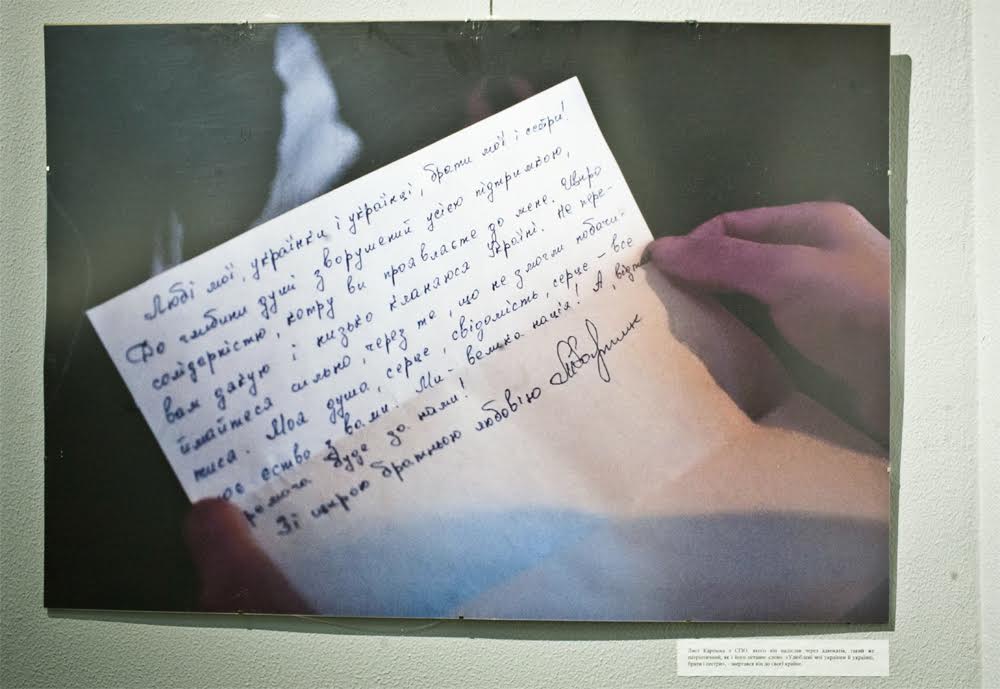 Любі мої, українки і українці, брати мої і сестри!
До глибини душі зворушений усією підтримкою,
солідарністю, котру ви проявляєте до мене. Щиро
вам дякую і низько кланяюся Україні. Не пере-
ймайтеся сильно, через те, що не змогли побачи-
тися. Моя душа, серце, свідомість, серце - все
моє єство з вами! Ми - велика нація! А, відтак
ремога буде за нами!
Зі щирою братньою любов'ю
Лист Карпюка з СІЗО, якого він надіслав через адвокатів, такий же
патріотичний, як і його останнє слово. «Улюблені мої українки й українці,
брати і сестри», - звертався він до своєї країни.